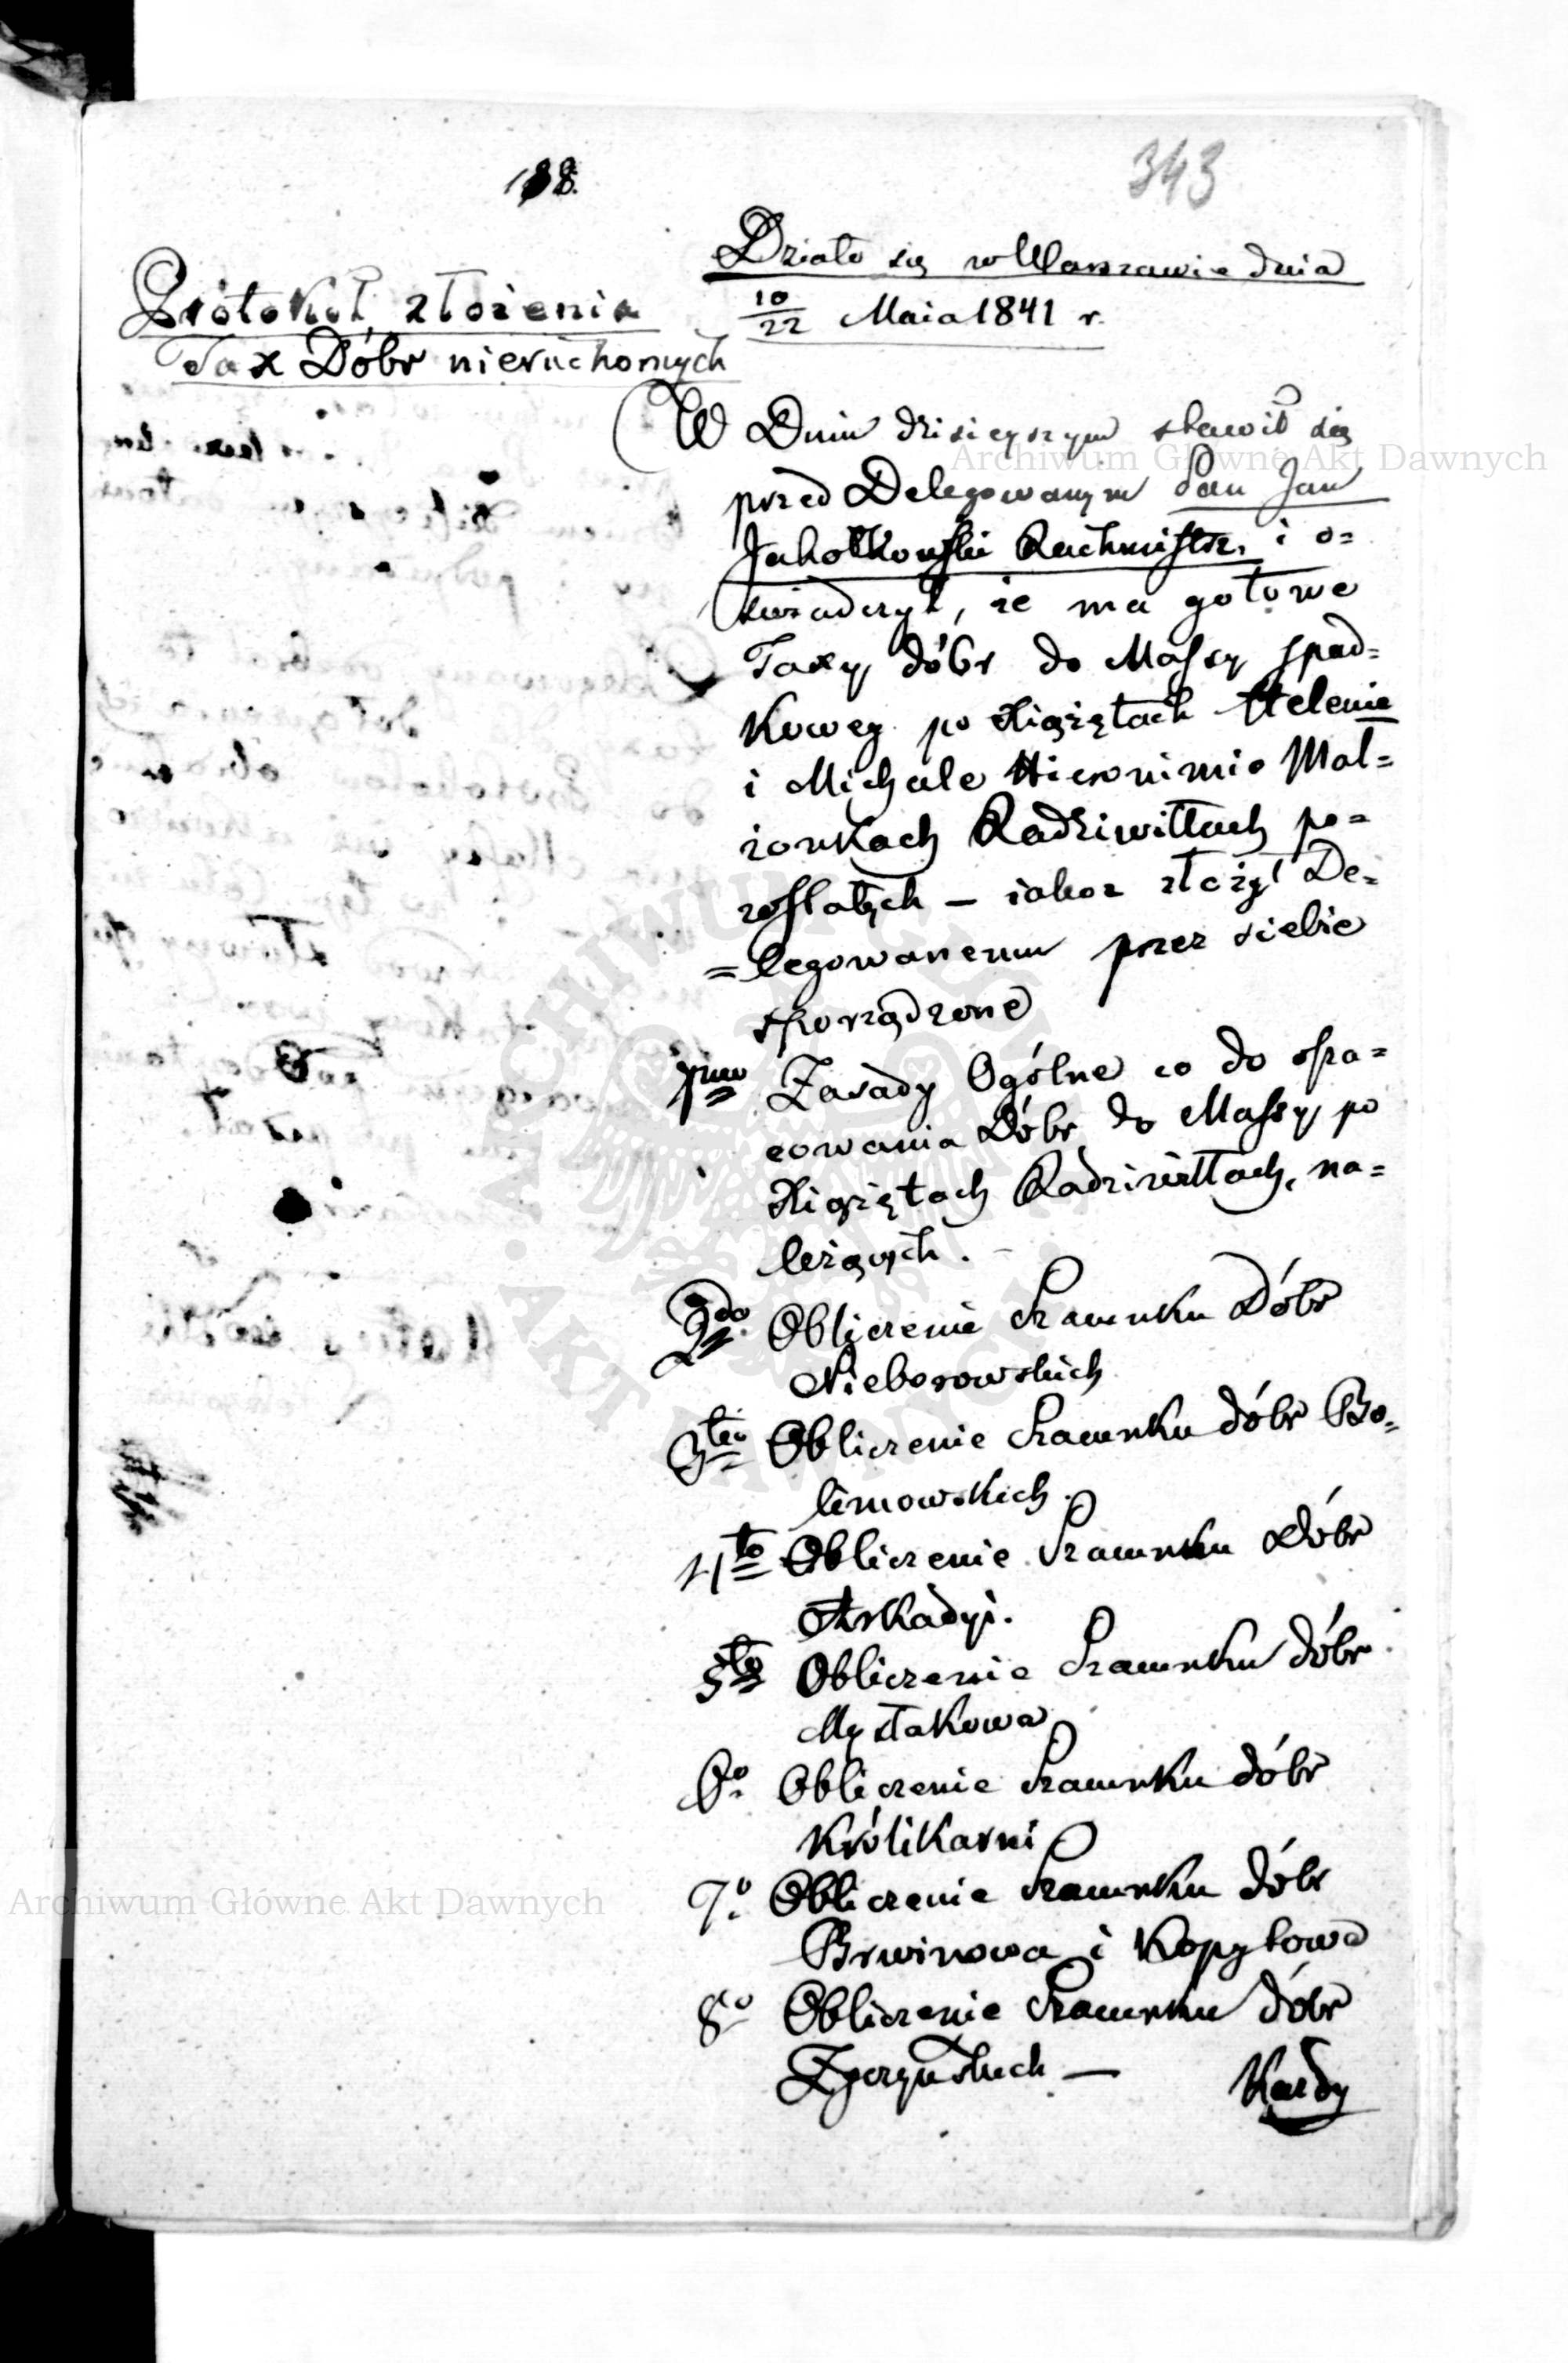 188.
343
Protokół złożenia
Tax Dóbr nieruchomych
Działo się w Warszawie dnia
10/22 Maia 1841 r.
W Dniu dzisieyszym stawił się
przed Delegowanym Pan Jan
Jakołkowski Rachmistrz, i o=
świadczył, że ma gotowe
Taxy dóbr do Massy spad=
kowey po Xiążętach Helenie
i Michale Hieronimie Mał=
żonkach Radziwiłłach po=
zostałych — iakoż złożył De=
=legowanemu przez siebie
sporządzone
1mo Zasady Ogólne co do osza=
cowania Dóbr do Massy po
Xiążętach Radziwiłłach, na=
leżących.
2do Obliczenie Szacunku Dóbr
Nieborowskich
3tio Obliczenie Szacunku dóbr Bo=
limowskich.
4to Obliczenie Szacunku Dóbr
Arkadyi.
5to Obliczenie Szacunku dóbr
Mysłakowa
6o Obliczenie Szacunku dóbr
Królikarni
7o Obliczenie Szacunku dóbr
Brwinowa i Kopytowa
8o Obliczenie Szacunku dóbr
Zgczyńskich —
Każdy
Archiwum Główne Akt Dawnych
Archiwum Główne Akt Dawnych
ARCHIWUM GŁÓWNE
AKT DAWNYCH